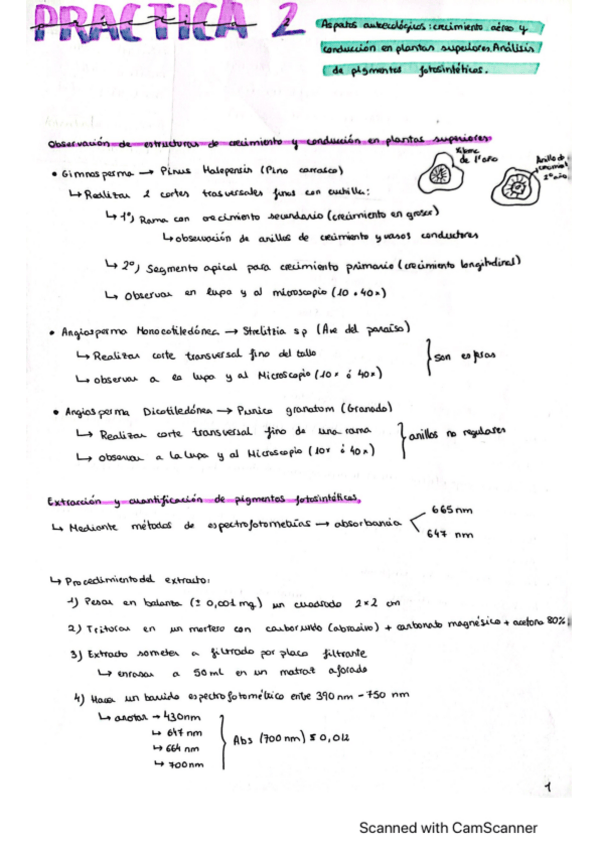 PRÁCTICA 2
Aspectos autoecológicos: crecimiento aéreo y
conducción en plantas superiores. Análisis
de pigmentos fotosintéticos.
Observación de estructuras de crecimiento y conducción en plantas superiores
• Gimnosperma → Pinus Halepensis (Pino carrasco)
Xilema
de 1º año
Anillo de
2º año
↳ Realizar 2 cortes trasversales finos con cuchilla:
↳ 1º) Rama con crecimiento secundario (crecimiento en grosor)
↳ observación de anillos de crecimiento y vasos conductores
↳ 2º) Segmento apical para crecimiento primario (crecimiento longitudinal)
↳ Observar en lupa y al microscopio (10 · 40x)
• Angiosperma Monocotiledónea → Strelitzia sp (Ave del paraíso)
↳ Realizar corte transversal fino del tallo
↳ observar a la lupa y al Microscopio (10x ó 40x)
son
• Angiosperma Dicotiledónea → Punica granatom (Granado)
↳ Realizar corte transversal fino de una rama
↳ observar a la Lupa y al Microscopio (10x ó 40x)
anillos no regulares
Extracción y cuantificación de pigmentos fotosintéticos.
↳ Mediante métodos de espectrofotometrías → absorbancia
665 nm
647 nm
↳ Procedimiento del extracto:
1) Pesar en balanza (± 0,001 mg) un cuadrado 2x2 cm
2) Triturar en un mortero con carborundo (abrasivo) + carbonato magnésico + acetona 80%
3) Extracto someter a filtrado por placa filtrante
↳ enrasar a 50 ml en un matraz aforado
4) Hacer un barrido espectrofotométrico entre 390 nm - 750 nm
↳ anotar → 430nm
↳ 647 nm
↳ 664 nm
↳ 700 nm
Abs (700 nm)
1
Scanned with CamScanner